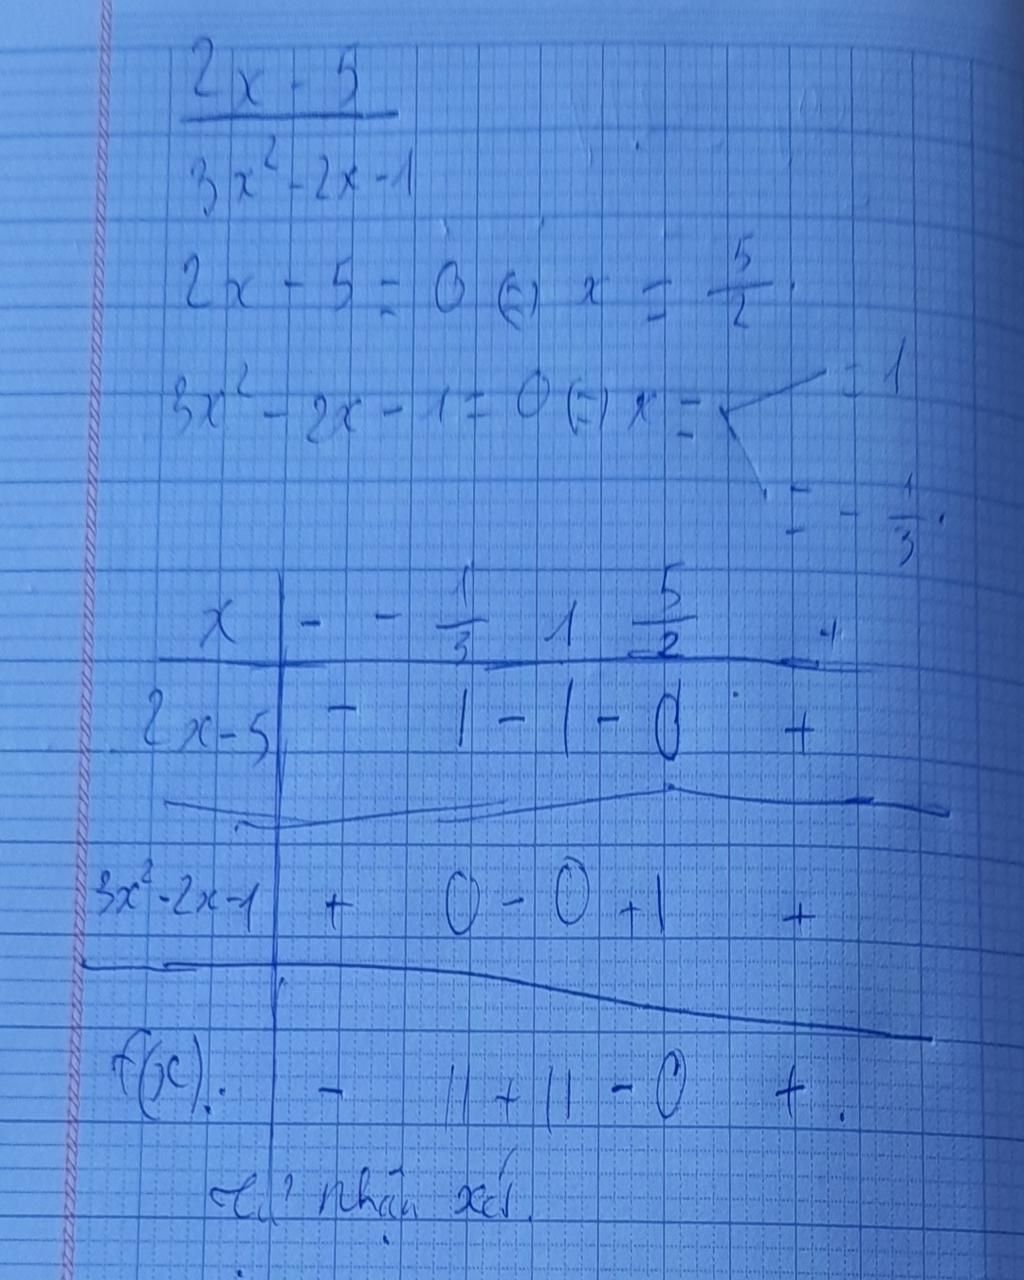 2x - 5
3x² - 2x - 1
2x - 5 = 0 (=) x = 5/2.
3x² - 2x - 1 = 0 (=) x = = 1
= - 1/3.
x | - - 1/3 1 5/2 +
2x - 5 | - | - | - 0 +
3x² - 2x - 1 | + 0 - 0 + | +
f(x). | - || + || - 0 +.
nhận xét.